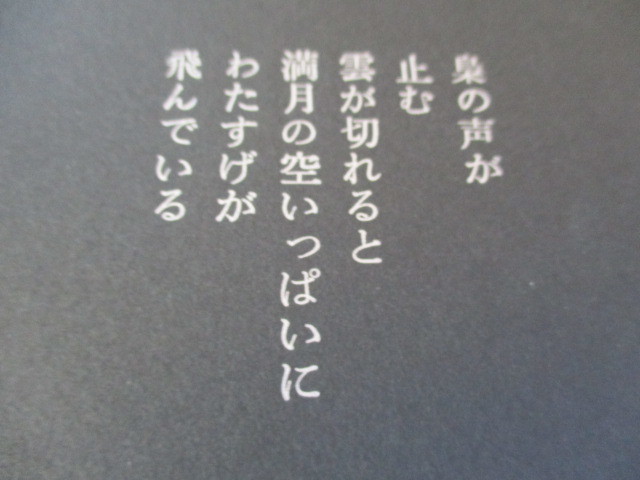 梟の声が
止む
雲が切れると
満月の空いっぱいに
わたすげが
飛んでいる